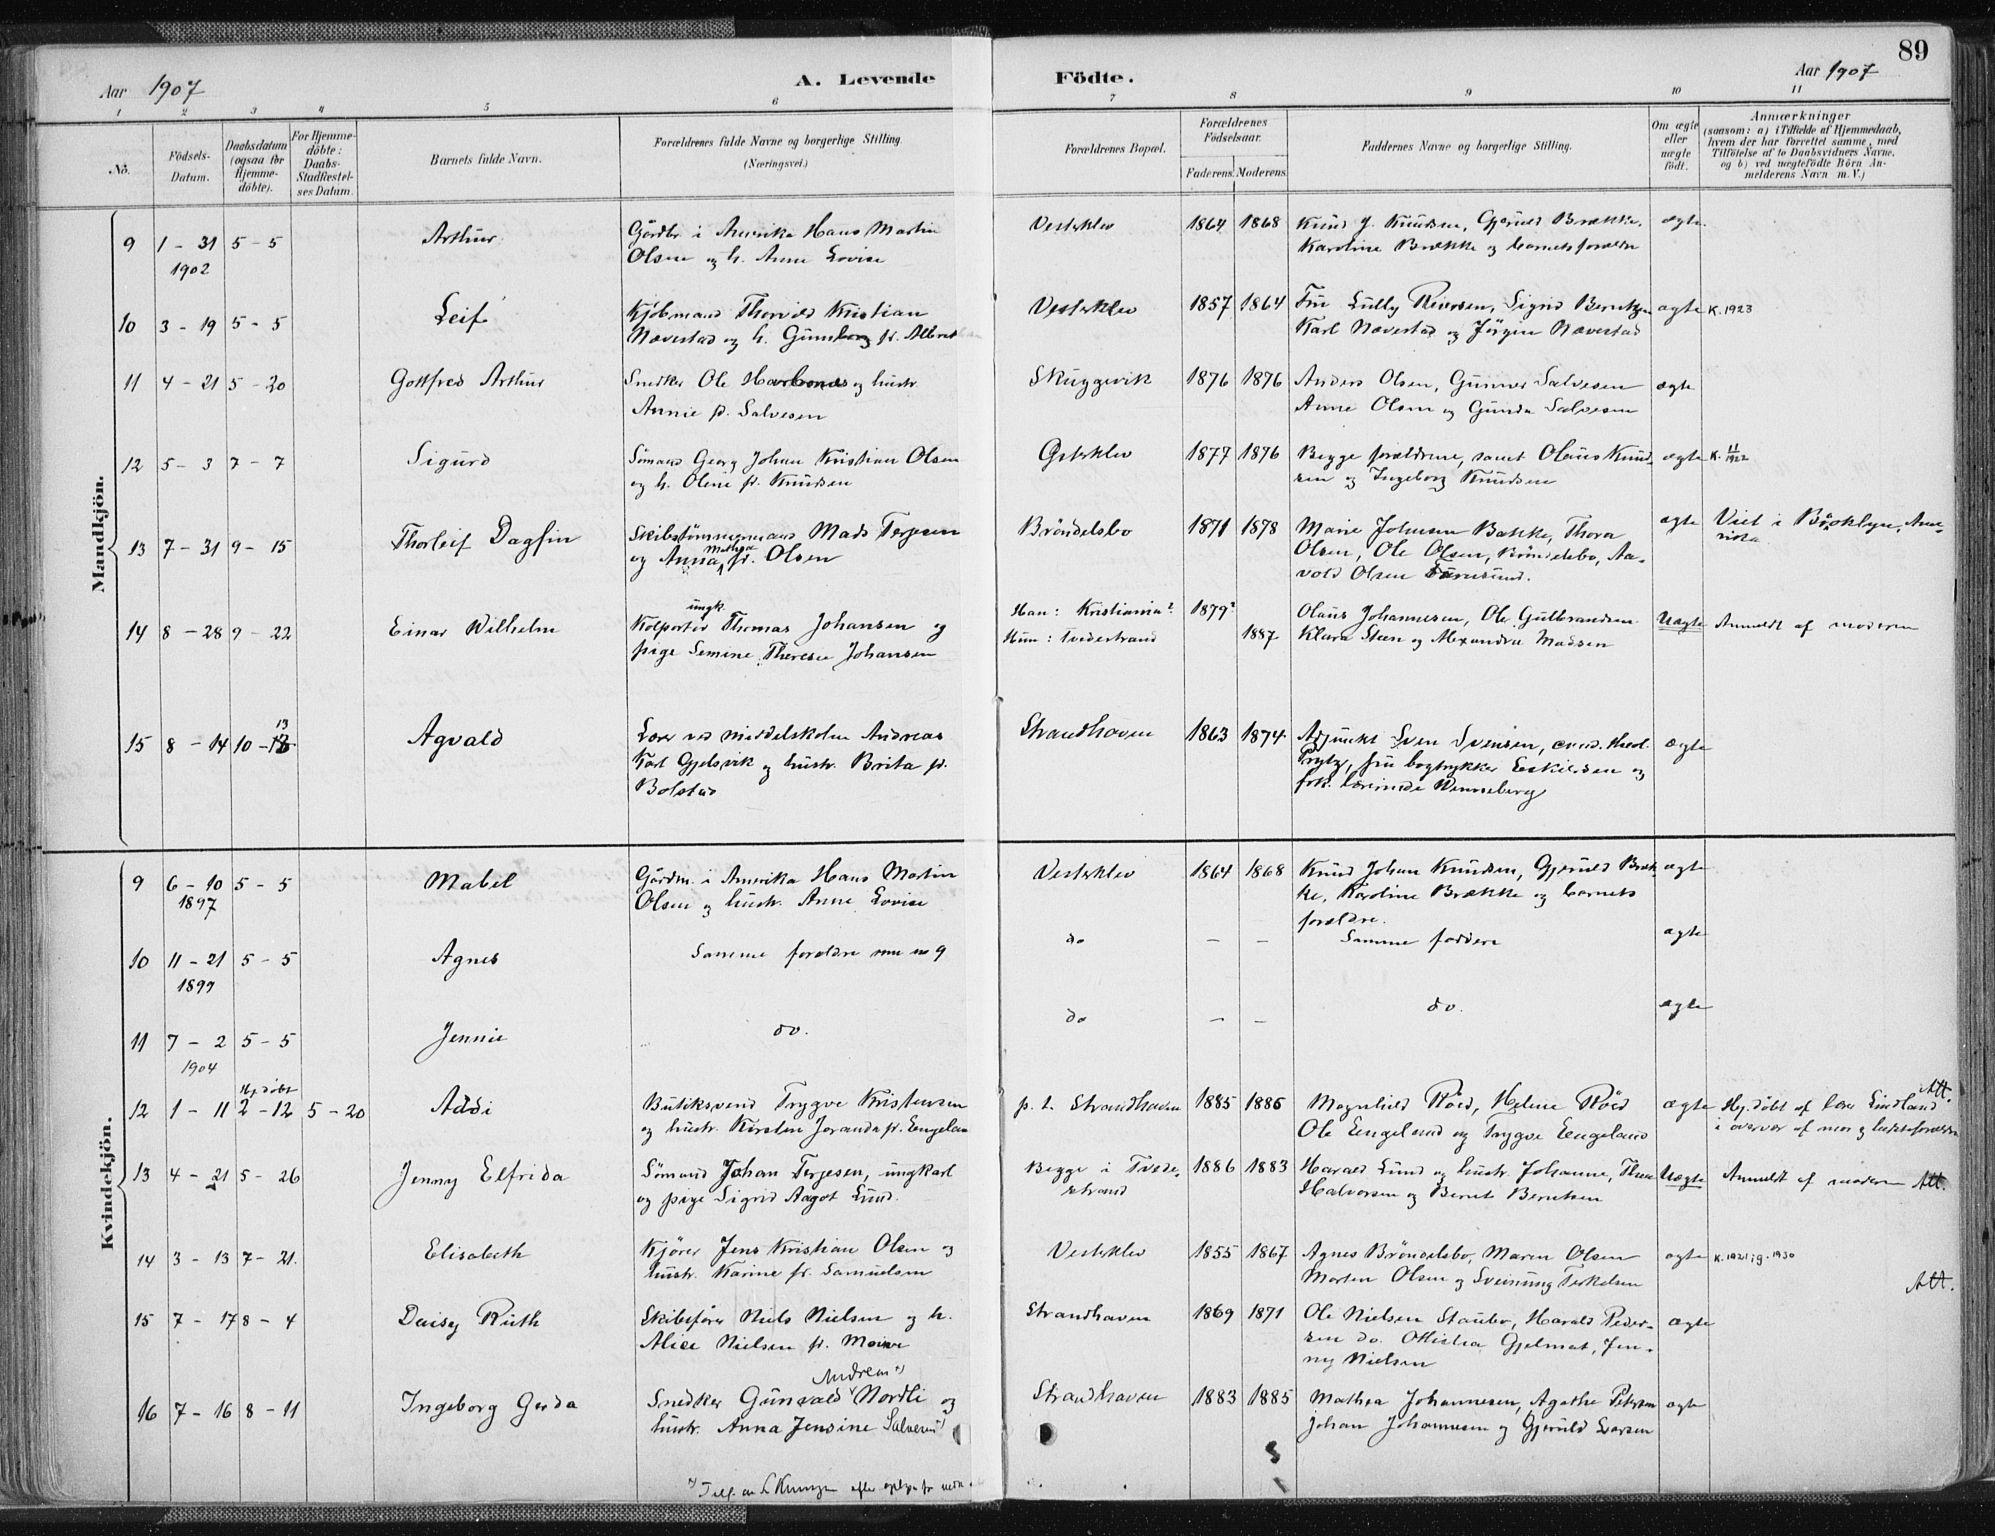 89
Aar 1907 A. Levende Födte. Aar 1907
1 2 3 4 5 6 7 8 9 10 11
No. Födsels-Datum. Daabsdatum (ogsaa for Hjemme-döbte). For Hjemme-döbte: Daabs-Stadfæstel-ses Datum. Barnets fulde Navn. Forældrenes fulde Navne og borgerlige Stilling. (Næringsvei.) Forældrenes Bopæl. Forældrenes Födselsaar. Faderens. Moderens. Faddernes Navne og borgerlige Stilling. Om ægte eller uægte födt. Anmærkninger (saasom: a) i Tilfælde af Hjemmedaab, hvem der har forrettet samme, med Tilföielse af to Daabsvidners Navne, og b) ved uægtefödte Börn Anmelderens Navn m. V.)
Mandkjön.
9 1 - 31 5 - 5 Arthur Gårdbr. i Amerika Hans Martin Vesterklev 1864 1868 Knud J. Knudsen, Gjeruld Brække, ægte.
1902 Olsen og h. Anne Lovise Karoline Brække og barnets forældre
10 3 - 19 5 - 5 Leif Kjöbmand Thorvald Kristian Vesterklev 1857 1864 Fru Lully Reiersen, Sigrid Berntzen ægte K. 1923
Nævestad og h. Gunborg f. Albret Karl Nævestad og Jörgen Nævestad
11 4 - 21 5 - 20 Gottfred Arthur Snedker Ole og hustr. Skuggevik 1876 1876 Anders Olsen, Gunner Salvesen ægte
Annie f. Salvesen Anne Olsen og Gunda Salvesen
12 5 - 3 7 - 7 Sigurd Sömand Georg Johan Kristian Olsen Österklev 1877 1876 Begge forældrene, samt Olaus Knud- ægte K. 1922
og h. Olene f. Knudsen sen og Ingeborg Knudsen
13 7 - 31 9 - 15 Thorleif Dagfin Skibstömmermand Mads Terjesen Bröndelsbo 1871 1878 Marie Johnsen Bakke, Thora ægte Viet i Brooklyn, Ame-
og Anna Mathea f. Olsen Olsen, Ole Olsen, Bröndelsbo, Aa- rika
vold Olsen Furusund.
14 8 - 28 9 - 22 Einar Wilhelm Kolportör ungk. Thomas Johansen og Han: Kristiania? 1879? Olaus Johannesen, Ole Gulbrandsen Uægte Anmeldt af moderen
pige Semine Therese Johansen Hun: Tvedestrand 1887 Klara Steen og Alexandra Madsen
15 8 - 14 10 - 13 Agvald Lærer ved middelskolen Andreas Strandhaven 1863 1874 Adjunkt Sven Svensen, cand. theol. ægte
Karl Gjelsvik og hustr. Brita f. Prytz, fru bogtrykker Eskildsen og
Bolstad frk. lærerinde Wenneberg
Kvindekjön.
9 6 - 10 5 - 5 Mabel Gårdm. i Amerika Hans Martin Vesterklev 1864 1868 Knud Johan Knudsen, Gjeruld Bræk- ægte
1897 Olsen og hustr. Anne Lovise ke, Karoline Brække og barnets
forældre.
10 11 - 21 5 - 5 Agnes Samme forældre som no 9 do - - Samme faddere ægte
1899
11 7 - 2 5 - 5 Jennie do. do - - do. ægte
1904
12 1 - 11 Hj.döbt 2 - 12 5 - 20 Addi Butiksvend Trygve Kristensen p. t. Strandhaven 1885 1885 Magnhild Röed, Helene Röed ægte Hj.döbt af lærer Lindland Att.
og hustr. Kirsten Joranda f. Engelan Ole Engelund og Trygve Engelund i overvær af mor og bedsteforældre
13 4 - 21 5 - 26 Jenny Elfrida Sömand Johan Terjesen, ungkarl Begge i Tvede- 1886 1883 Harald Lund og hustr. Johanne, Thea Uægte Anmeldt af moderen Att.
og pige Sigrid Aagot Lund. strand Halvorsen og Bernt Berntsen
14 3 - 13 7 - 21. Elisabeth Kjörer Jens Kristian Olsen og Vesterklev 1855 1867 Agnes Bröndelsbo, Maren Olsen ægte K. 1921; g. 1930
hustr. Karine f. Samuelsen Morten Olsen og Sveinung Terkelsen Att.
15 7 - 17 8 - 4 Daisy Ruth Skibsförer Niels Nielsen og h. Strandhaven 1869 1871 Ole Nielsen Staubo, Harald Peder- ægte
Alice Nielsen f. Moine sen do. Othilia Gjelmat, Jen-
ny Nielsen
Andreas x)
16 7 - 16 8 - 11 Ingeborg Gerda Snedker Gunvald Nordli og Strandhaven 1883 1885 Mathea Johannesen, Agathe Petersen ægte
hustr. Anna Jensine Salvesen x) Johan Johannesen og Gjeruld Larsen